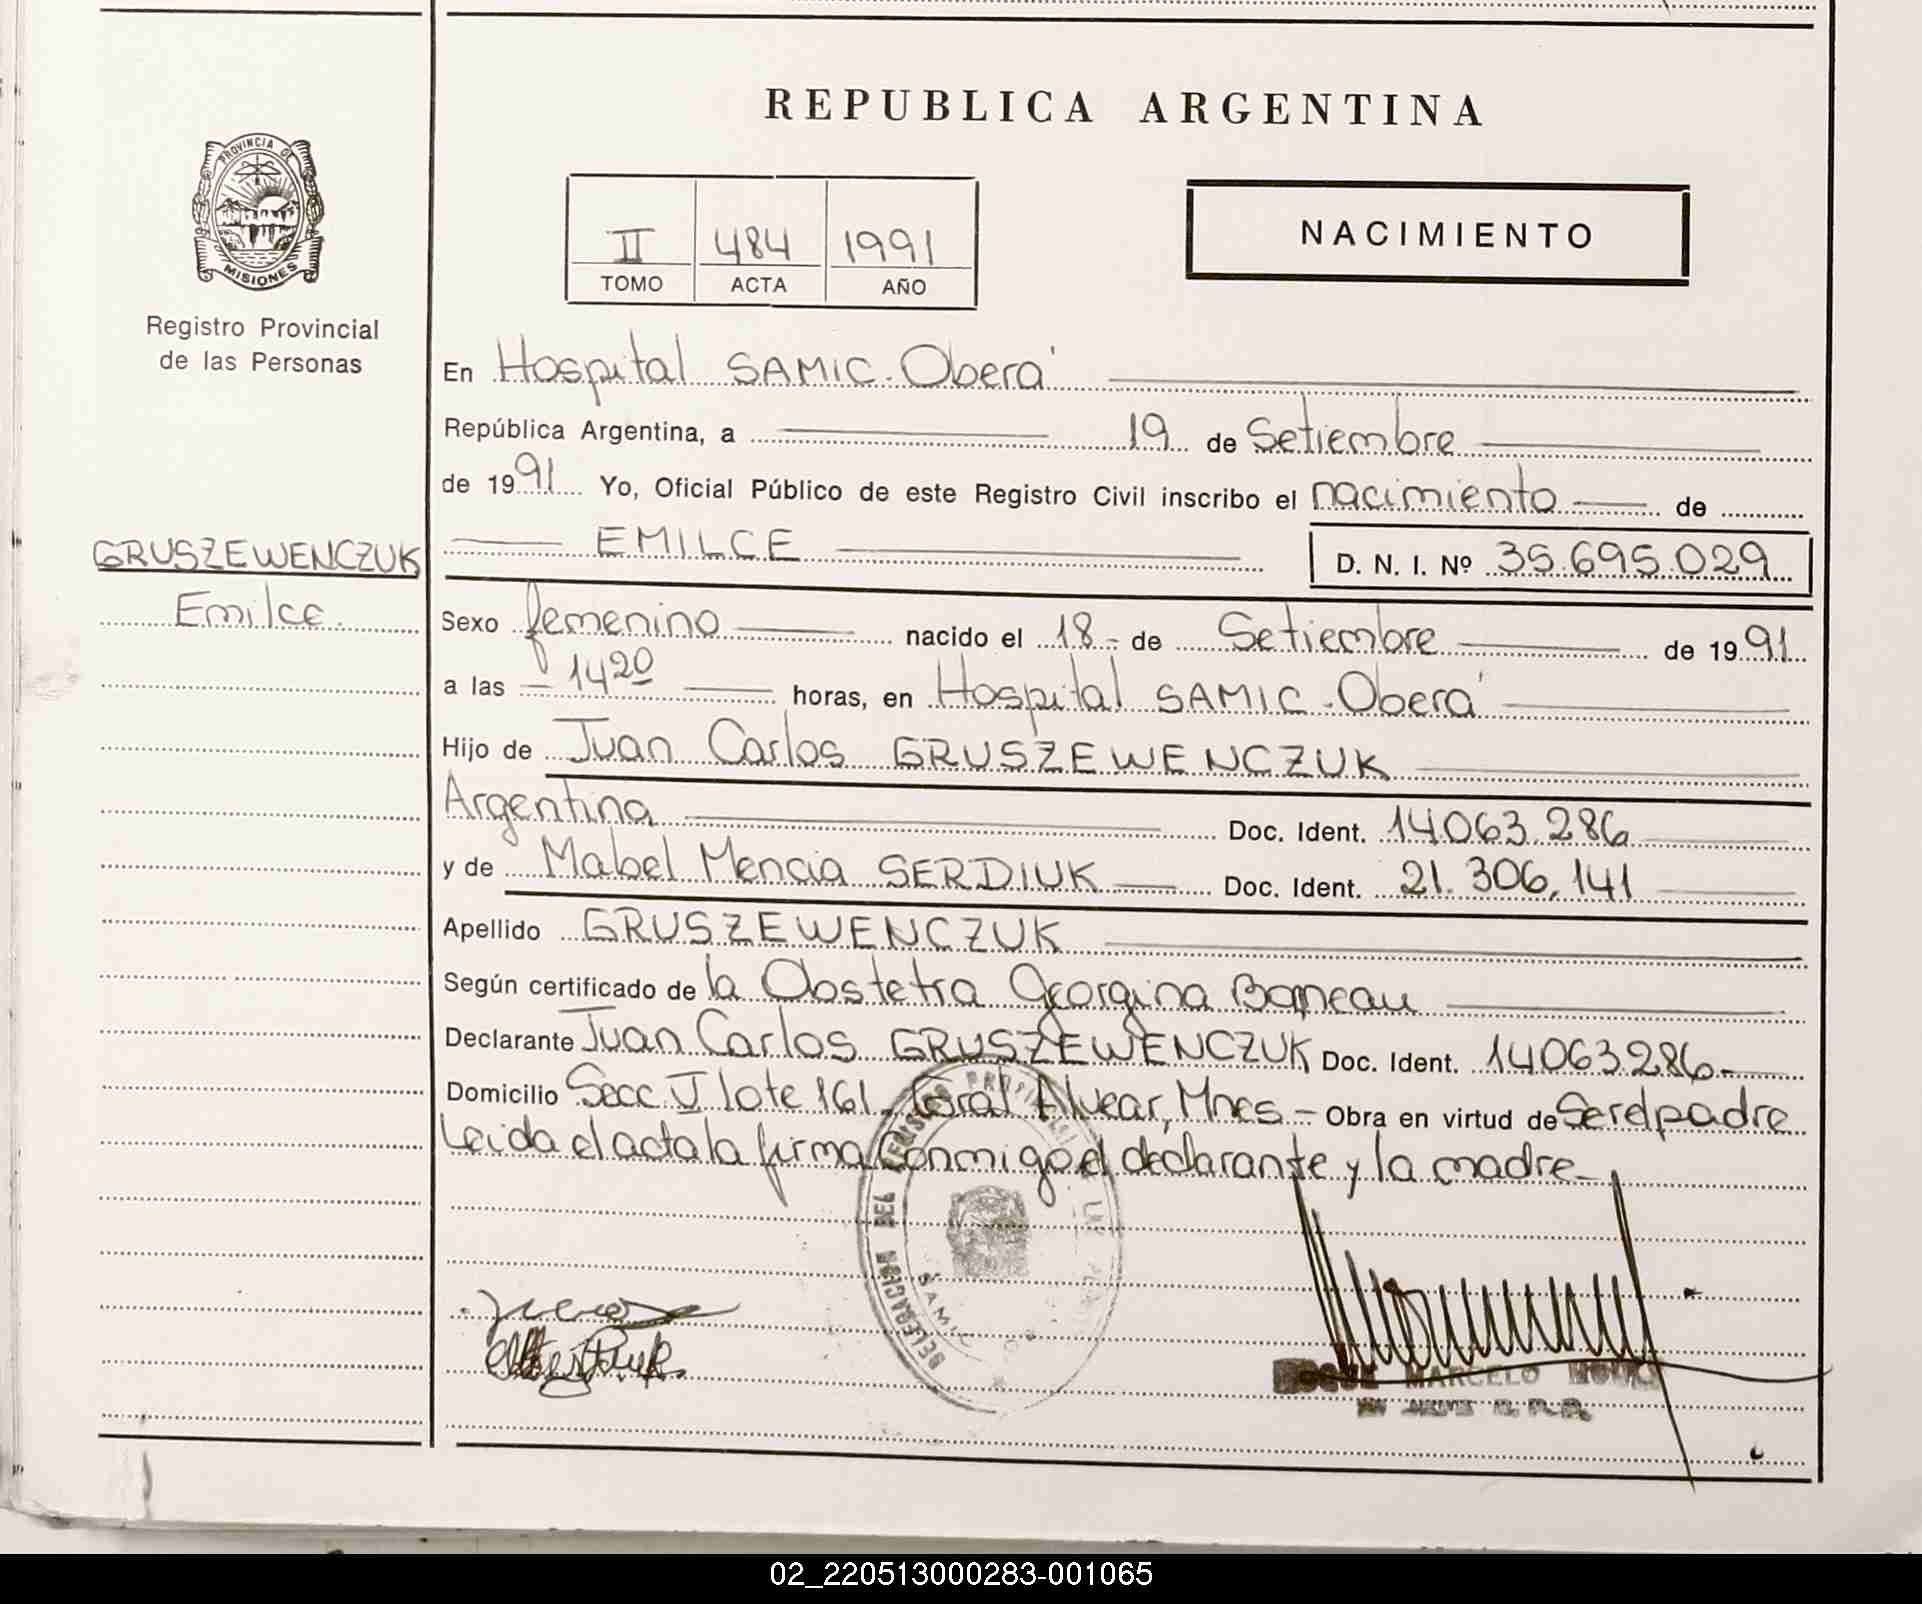 REPUBLICA ARGENTINA
PROVINCIA DE
MISIONES
Registro Provincial
de las Personas
II 484 1991
TOMO ACTA AÑO
NACIMIENTO
En Hospital SAMIC - Oberá
República Argentina, a 19 de Setiembre
de 1991 Yo, Oficial Público de este Registro Civil inscribo el nacimiento de
EMILCE
D. N. I. Nº 35.695.029
GRUSZEWENCZUK
Emilce.
Sexo femenino nacido el 18 - de Setiembre de 1991
a las 14 20 horas, en Hospital SAMIC - Oberá
Hijo de Juan Carlos GRUSZEWENCZUK
Argentina Doc. Ident. 14.063.286
y de Mabel Mencia SERDIUK Doc. Ident. 21.306.141
Apellido GRUSZEWENCZUK
Según certificado de la Obstetra Georgina
Declarante Juan Carlos GRUSZEWENCZUK Doc. Ident. 14063286-
Domicilio Secc. V lote 161 - Gral Alvear, Mnes - Obra en virtud de Ser el padre
Leida el acta la firma conmigo el declarante y la madre-
DELEGACION DEL
SAMIC
MARCELO
02_220513000283-001065